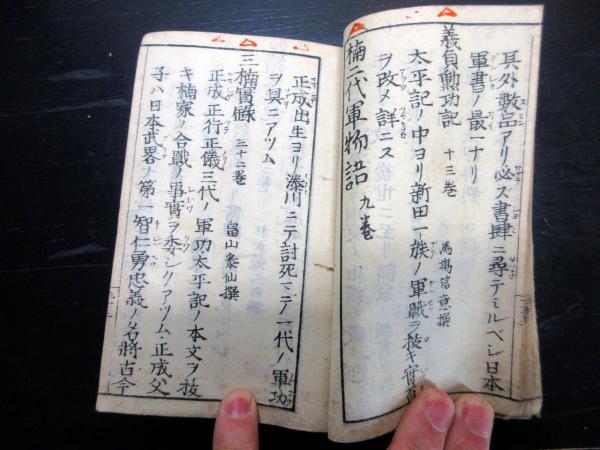 其外數品アリ必ズ書肆ニ尋テミルベシ日本
軍書ノ最一ナリ
義貞勲功記 十三巻 馬場信意撰
太平記ノ中ヨリ新田一族ノ軍戰ヲ抜キ實
ヲ改メ詳ニス
楠二代軍物語 九巻
正成出生ヨリ湊川ニテ討死マデノ一代ノ軍功
ヲ具ニアツム
三楠實録 二十二巻 畠山泰仙撰
正成正行正儀三代ノ軍功太平記ノ本文ヲ抜
キ楠家ノ合戰ノ事實ヲ委シクアツム・正成父
子ハ日本武畧ノ第一智仁勇忠義ノ名將古今